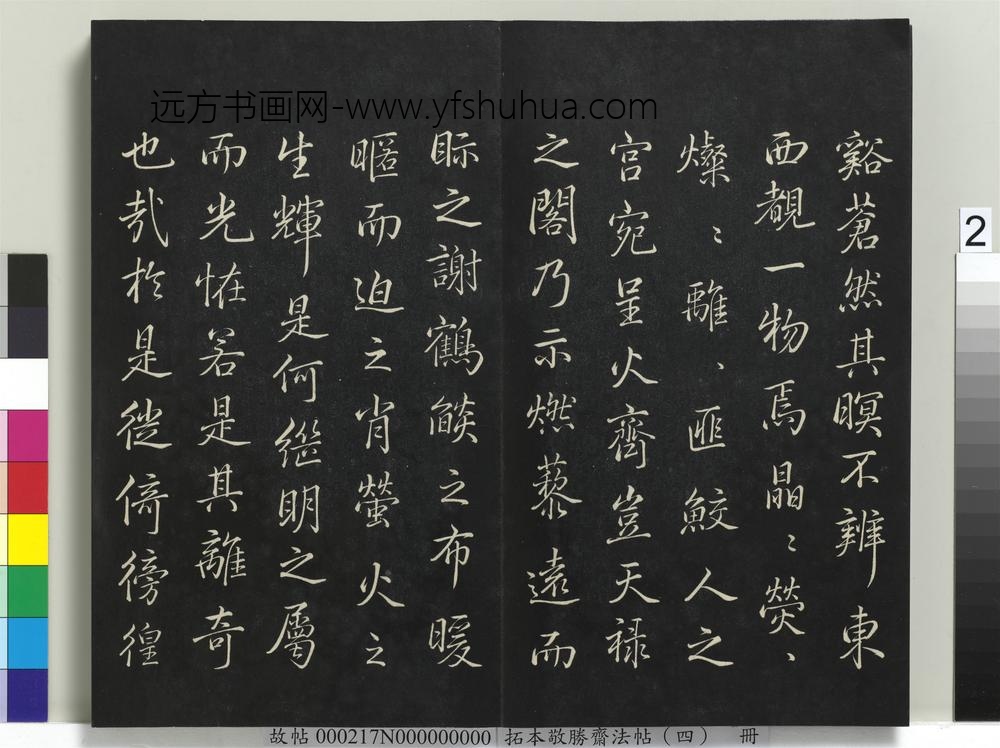 远方书画网-www.yfshuhua.com
谿蒼然其暝不辨東
西覩一物焉晶〻熒〻
燦〻離〻匪鮫人之
宮宛呈火齊豈天祿
之閣乃示燃藜遠而
眎之謝鶴燄之布暖
暱而迫之肖螢火之
生輝是何繼明之屬
而光恠若是其離奇
也哉於是徙倚徬徨
2
故帖 000217N000000000 拓本敬勝齋法帖（四） 冊